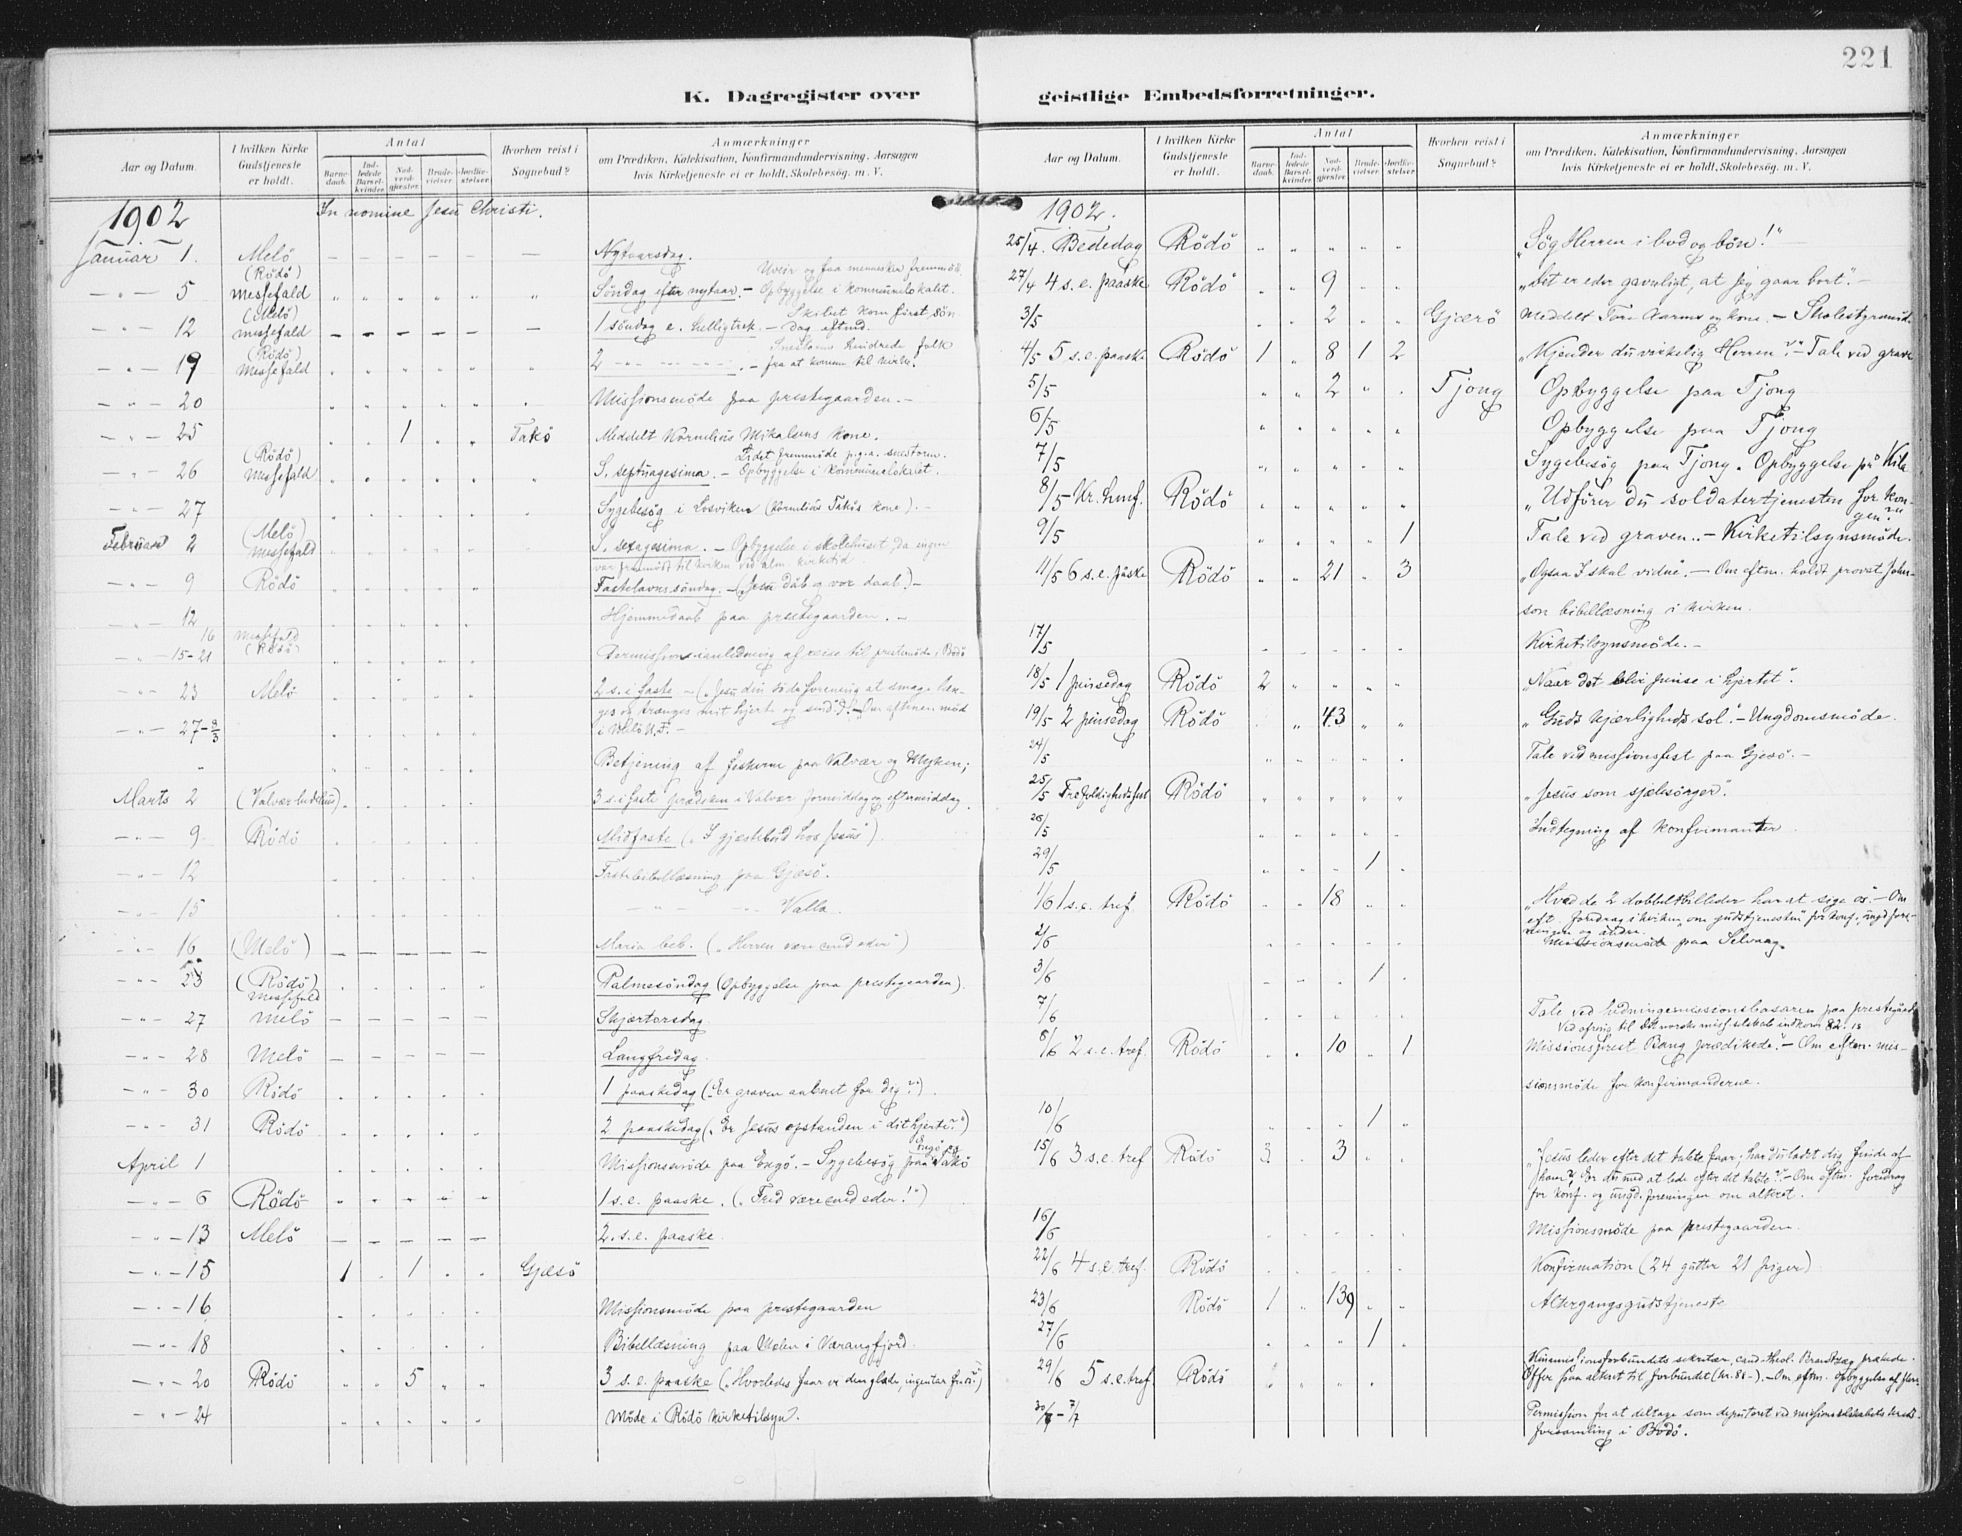 221
K. Dagregister over geistlige Embedsforretninger.
Aar og Datum. I hvilken Kirke Gudstjeneste er holdt. Antal Barnedaab. Indledede Barselkvinder. Nadverdgjæster. Brudevielser. Jordfæstelser. Hvorhen reist i Sognebud? Anmærkninger om Prædiken, Katekisation, Konfirmandundervisning. Aarsagen hvis Kirketjeneste ei er holdt, Skolebesøg. m. V.
1902 In nomine Jesu Christi.
Januar 1. Melö – – – – – – Nytaarsdag.
(Rödö) Uveir og faa mennesker fremmödt.
– " – 5 Messefald " " " " " " Söndag efter nytaar. – Opbyggelse i kommunelokalet.
(Melö) Skibet kom först sön-
– " – 12 messefald – – – – – – 1 söndag e. helligtrek. – dag eftmd.
(Rödö) Snestorm hindrede folk
– " – 19 Messefald " " " " " " 2 – " – – fra at komme til kirke.
– " – 20 Missionsmöde paa prestegaarden. –
– " – 25 1 Takö Meddelt Kornelius Mikalsens kone.
(Rödö) Lidet fremmöde p.g.a. snestorm.
– " – 26 Messefald S. septuagesima. – Opbyggelse i kommunelokalet.
– " – 27 Sygebesög i Losviken (Kornelius Takös kone). –
Februar 2 (Melö) messefald S. sexagesima. – Opbyggelse i skolehuset, da ingen
var fremmödt til kirken ved alm. kirketid.
– " – 9 Rödö Fastelavnssöndag. – (Jesu dåb og vor daab) –
– " – 12 Hjemmedaab paa prestegaarden. –
16 messefald
– " – 15-21 (Rödö) Permission i anledning af reise til prestemöde i Bodö
– " – 23 Melö 2 s. i faste –
– " – 27-8/3 i Melö U.F. –
" Betjening af fiskerne paa Valvær og Myken;
Marts 2 (Valvær bedehus) 3 s. i faste prædiken i Valvær formiddag og eftermiddag.
– " – 9 Rödö Midfaste („I gjæstebud hos Jesus").
– " – 12 Fastebibellæsning paa Gjæsö.
– " – 15 – " – – " – Valla.
– " – 16 (Melö) – – – – – Maria beb. („Herren være med eder")
– " – 23 (Rödö) Messefald Palmesöndag (Opbyggelse paa prestegaarden).
– " – 27 Melö – – – – – Skjærtorsdag.
– " – 28 Melö – – – – – Langfredag.
– " – 30 Rödö 1 paaskedag („Er graven aabnet for dig?").
– " – 31 Rödö 2 paaskedag („Er Jesus opstanden i dit hjerte?")
April 1 Missionsmöde paa Engö. – Sygebesög paa Engö og Takö
– " – 6 Rödö 1 s. e. paaske. („Fred være med eder!")
– " – 13 Melö – – – – – 2. s. e. paaske.
– " – 15 1 1 Gjæsö
– " – 16 Missionsmöde paa prestegaarden
– " – 18 Bibellæsning paa Melen i Værangfjord.
– " – 20 Rödö 5 3 s. e. paaske
– " – 24 Möde i Rödö kirketilsyn.
Aar og Datum. I hvilken Kirke Gudstjeneste er holdt. Antal Barnedaab. Indledede Barselkvinder. Nadverdgjæster. Brudevielser. Jordfæstelser. Hvorhen reist i Sognebud? Anmærkninger om Prædiken, Katekisation, Konfirmandundervisning. Aarsagen hvis Kirketjeneste ei er holdt, Skolebesøg. m. V.
1902.
25/4. Bededag Rödö „Søg Herren i bod og bön!"
27/4 4 s. e. paaske Rödö 9 „Det er eder gavnligt, at jeg gaar bort". –
3/5 2 Gjærö Meddelt Tore Karms og kone. – Skolestyremöde.
4/5 5 s. e. paaske Rödö 1 8 1 2 „Kjender du virkelig Herren?" – Tale ved grave
5/5 2 Tjong Opbyggelse paa Tjong
6/5 Opbyggelse paa Tjong
7/5 Sygebesög paa Tjong. Opbyggelse på Kila
8/5 Kr. hmf. Rödö „Udförer du soldatertjenesten for kon-
gen?"
9/5 1 Tale ved graven. – Kirketilsynsmöde.
11/5 6 s. e. påske Rödö 21 3 „Ogsaa I skal vidne". – Om eftm. holdt provst John-
son bibellæsning i kirken.
17/5 Kirketilsynsmöde. –
18/5 1 pinsedag Rödö 2 „Naar det blir pinse i hjertet".
19/5 2 pinsedag Rödö 43 „Guds kjærligheds sol". – Ungdomsmöde.
24/5 Tale ved missionsfest paa Gjæsö. –
25/5 Trefoldighedsfest Rödö „Jesus som sjælesörger".
26/5 Indtegning af konfirmanter.
29/5 1
1/6 1 s. e. tref Rödö 18 „Hvad de 2 dobbeltbilleder har at sige os. – Om
eft. foredrag i kirken „om gudstjenesten" for konf., ungd.fore-
ningen og andre.
2/6 Missionsmöde paa Selvaag.
3/6 1
7/6 Tale ved hedningemissionsbasaren paa prestegård
Ved ofring til Det norske miss.selskab indkom 82.18
8/6 2 s. e. tref. Rödö 10 1 Missionsprest Bang prædikede. – Om eftm. mis-
sionsmöde for konfirmanderne.
10/6 1
15/6 3 s. e. tref. Rödö 3 3 „Jesus leder efter det tabte faar; har du ladt dig finde af
ham? Er du med at lede efter det tabte?" – Om eftm. foredrag
for konf. og ungd.foreningen om alteret.
16/6 Missionsmöde paa prestegaarden.
22/6 4 s. e. tref. Rödö Konfirmation (24 gutter 21 piger)
23/6 Rödö 1 139 Altergangsgudstjeneste
27/6 1
29/6 5 s. e. tref. Rödö Kinamissionsforbundets sekretær, cand. theol. Brandtzæg prækede.
Offer paa alteret til forbundet
30/6 – 7/7 Permission for at deltage som deputeret ved missionsselskabets kreds-
forsamling i Bodö.